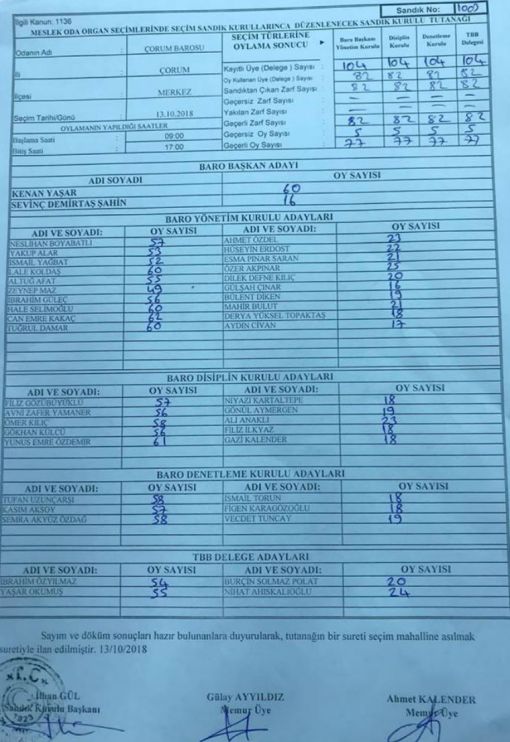 İlgili Kanun: 1136
Sandık No: 1001
MESLEK ODA ORGAN SEÇİMLERİNDE SEÇİM SANDIK KURULLARINCA DÜZENLENECEK SANDIK KURULU TUTANAĞI
Odanın Adı : ÇORUM BAROSU
İli : ÇORUM
İlçesi : MERKEZ
Seçim Tarihi/Günü : 13.10.2018
OYLAMANIN YAPILDIĞI SAATLER
Başlama Saati : 09:00
Bitiş Saati : 17:00
SEÇİM TÜRLERİNE OYLAMA SONUCU Baro Başkanı Yönetim Kurulu Disiplin Kurulu Denetleme Kurulu TBB Delegesi
Kayıtlı Üye (Delege) Sayısı : 104 104 104 104
Oy Kullanan Üye (Delege) Sayısı : 82 82 82 82
Sandıktan Çıkan Zarf Sayısı : 82 82 82 82
Geçersiz Zarf Sayısı : — — — —
Yakılan Zarf Sayısı : — — — —
Geçerli Zarf Sayısı : 82 82 82 82
Geçersiz Oy Sayısı : 5 5 5 5
Geçerli Oy Sayısı : 77 77 77 77
BARO BAŞKAN ADAYI
ADI SOYADI OY SAYISI
KENAN YAŞAR 60
SEVİNÇ DEMİRTAŞ ŞAHİN 16
BARO YÖNETİM KURULU ADAYLARI
ADI VE SOYADI: OY SAYISI ADI VE SOYADI: OY SAYISI
NESLİHAN BOYABATLI 57 AHMET ÖZDEL 23
YAKUP ALAR 53 HÜSEYİN ERDOST 22
İSMAİL YAĞBAT 52 ESMA PINAR SARAN 21
LALE KOLDAŞ 60 ÖZER AKPINAR 25
ALTUĞ AFAT 55 DİLEK DEFNE KILIÇ 20
ZEYNEP MAZ 49 GÜLŞAH ÇINAR 16
İBRAHİM GÜLEÇ 56 BÜLENT DİKEN 19
HALE SELİMOĞLU 60 MAHİR BULUT 21
CAN EMRE KAKAÇ 62 DERYA YÜKSEL TOPAKTAŞ 18
TUĞRUL DAMAR 60 AYDIN CİVAN 17
BARO DİSİPLİN KURULU ADAYLARI
ADI VE SOYADI: OY SAYISI ADI VE SOYADI: OY SAYISI
FİLİZ GÖZÜBÜYÜKLÜ 57 NİYAZİ KARTALTEPE 18
AVNİ ZAFER YAMANER 56 GÖNÜL AYMERGEN 19
ÖMER KILIÇ 58 ALİ ANAKLI 23
GÖKHAN KÜLCÜ 56 FİLİZ İLKYAZ 18
YUNUS EMRE ÖZDEMİR 61 GAZİ KALENDER 18
BARO DENETLEME KURULU ADAYLARI
ADI VE SOYADI: OY SAYISI ADI VE SOYADI: OY SAYISI
TUFAN UZUNÇARŞI 58 İSMAİL TORUN 18
KASIM AKSOY 57 FİGEN KARAGÖZOĞLU 18
SEMRA AKYÜZ ÖZDAĞ 58 VECDET TUNCAY 19
TBB DELEGE ADAYLARI
ADI VE SOYADI: OY SAYISI ADI VE SOYADI: OY SAYISI
İBRAHİM ÖZYILMAZ 54 BURÇİN SOLMAZ POLAT 20
YAŞAR OKUMUŞ 55 NİHAT AHISKALIOĞLU 24
Sayım ve döküm sonuçları hazır bulunanlara duyurularak, tutanağın bir sureti seçim mahalline asılmak
suretiyle ilan edilmiştir. 13/10/2018
T.C.
İlhan GÜL Gülay AYYILDIZ Ahmet KALENDER
Sandık Kurulu Başkanı Memur Üye Memur Üye